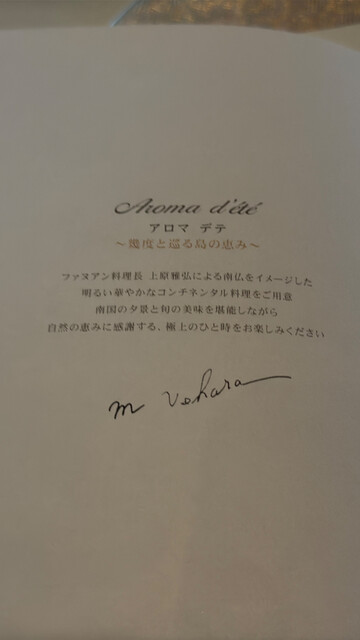 Aroma d'été
アロマ デテ
～幾度と巡る島の恵み～
ファヌアン料理長 上原雅弘による南仏をイメージした
明るい華やかなコンチネンタル料理をご用意
南国の夕景と旬の美味を堪能しながら
自然の恵みに感謝する、極上のひと時をお楽しみください
m Uehara